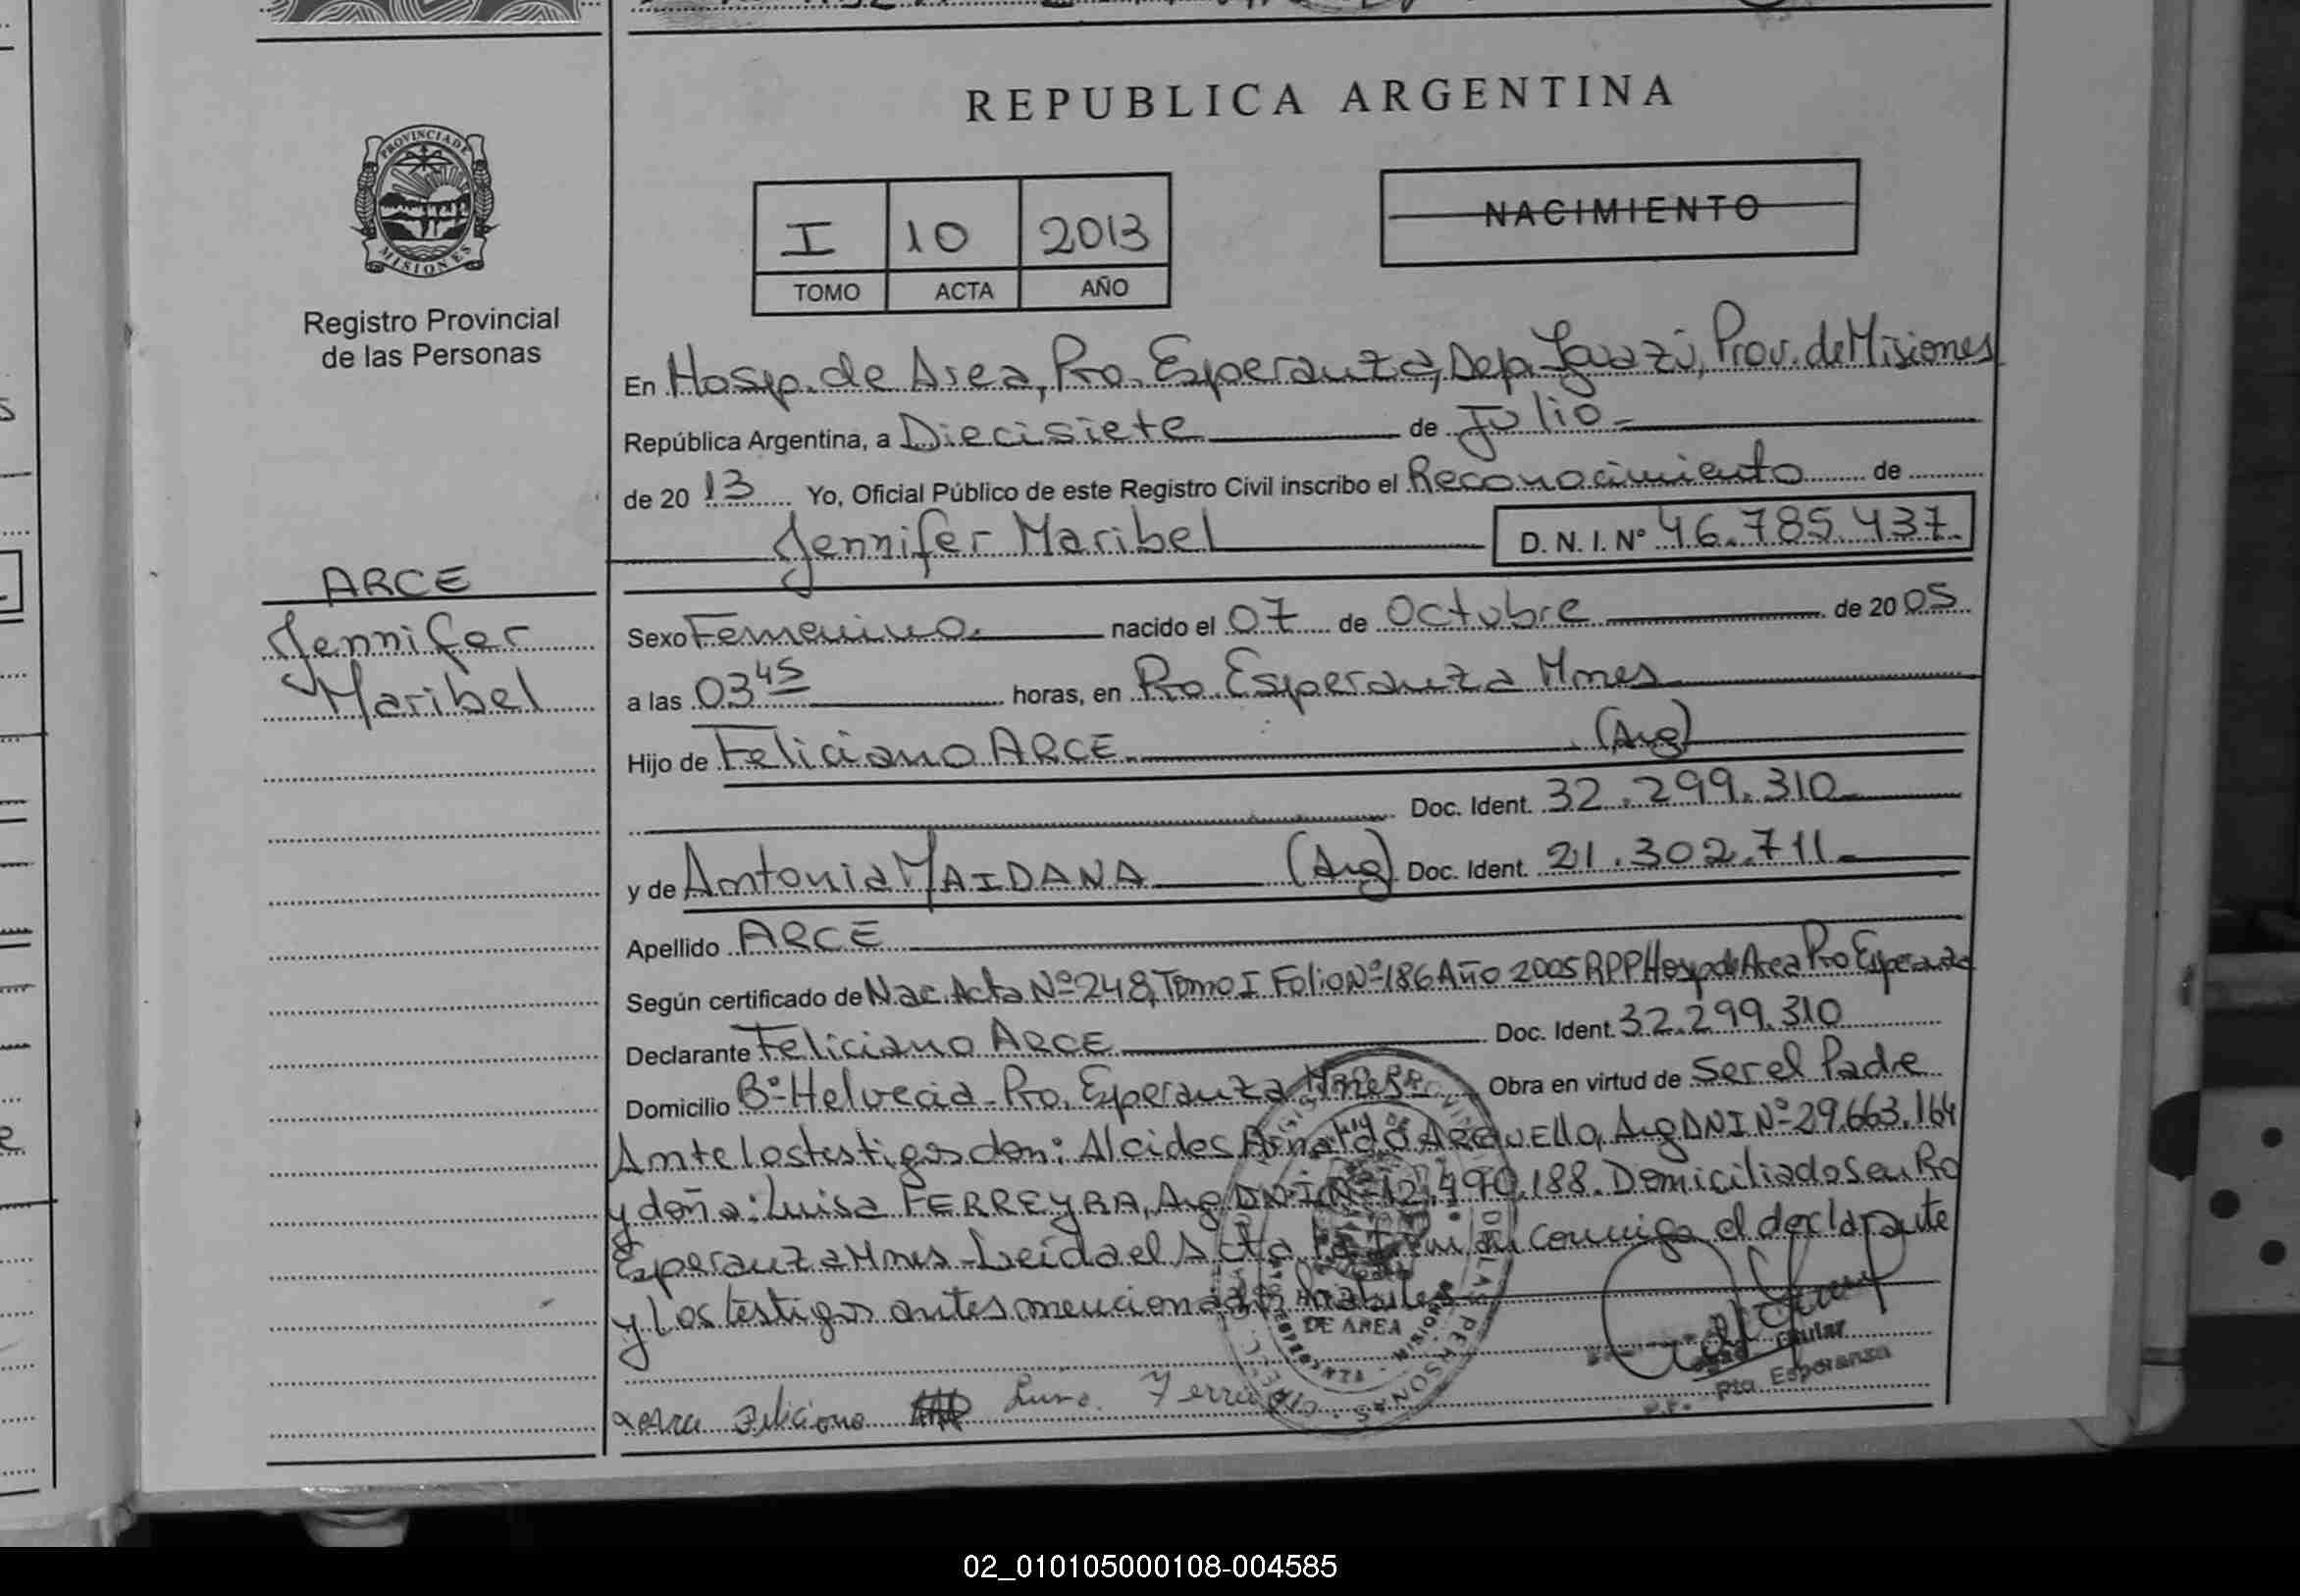 REPUBLICA ARGENTINA
PROVINCIA DE
MISIONES
Registro Provincial
de las Personas
I 10 2013
TOMO ACTA AÑO
NACIMIENTO
En Hosp. de Area, Pto. Esperanza, Dep. Iguazú, Prov. de Misiones
República Argentina, a Diecisiete de Julio
de 20 13 Yo, Oficial Público de este Registro Civil inscribo el Reconocimiento de
Jennifer Maribel D. N. I. Nº 46.785.437.
ARCE
Jennifer
Maribel
Sexo Femenino. nacido el 07 de Octubre de 20 05
a las 03 45 horas, en Pto. Esperanza Mnes
Hijo de Feliciano ARCE (Arg)
Doc. Ident. 32.299.310
y de Antonia MAIDANA (Arg) Doc. Ident. 21.302.711
Apellido ARCE
Según certificado de Nac. Acta Nº 248, Tomo I Folio Nº 186 Año 2005 RPP Hosp de Area Pto Esperanza
Declarante Feliciano ARCE Doc. Ident. 32.299.310
Domicilio Bº Helvecia - Pto. Esperanza Mnes Obra en virtud de Ser el Padre
Ante los testigos don: Alcides Arnaldo ARGUELLO, Arg DNI Nº 29.663.164
y doña: Luisa FERREYRA, Arg DNI Nº 12.490.188. Domiciliados en Pto
Esperanza Mnes - Leida el Acta la firman conmigo el declarante
y los testigos antes mencionados habiles
DE AREA
Feliciano
Pto. Esperanza
02_010105000108-004585